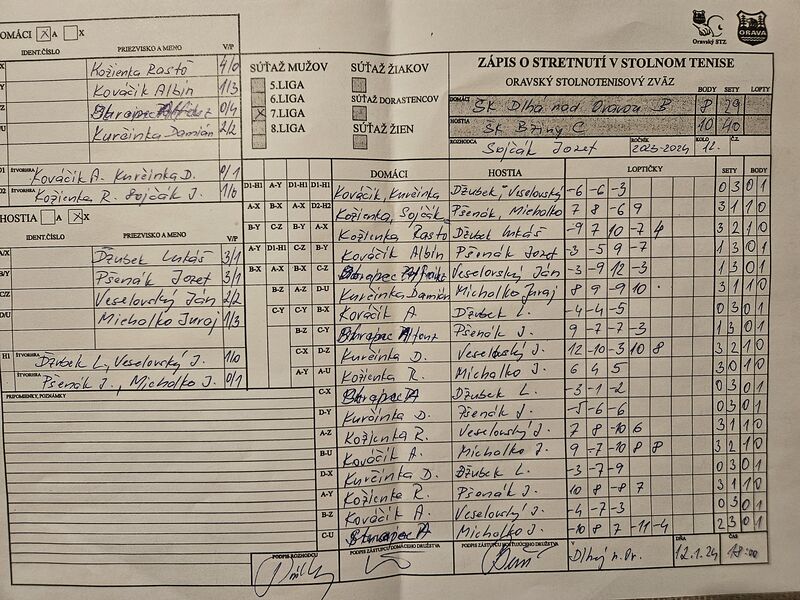 DOMÁCI X X
IDENT.ČÍSLO PRIEZVISKO A MENO V/P
Kožienka Rastó 4/0
Kováčik Albin 1/3
0/4
Kurčinka Damián 2/2
D1 ŠTVORHRA Kováčik A. Kurčinka D. 0/1
D2 ŠTVORHRA Kožienka R. Sojčák J. 1/0
HOSTIA A X X
IDENT.ČÍSLO PRIEZVISKO A MENO V/P
A/X Džubek Lukáš 3/1
B/Y Pšenák Jozef 3/1
C/Z Veselovský Ján 2/2
D/U Michalko Juroj 1/3
H1 ŠTVORHRA Džubek L, Veselovský J. 1/0
ŠTVORHRA Pšenák J., Michalko J. 0/1
PRIPOMIENKY, POZNÁMKY
SÚŤAŽ MUŽOV
5.LIGA
6.LIGA
X 7.LIGA
8.LIGA
SÚŤAŽ ŽIAKOV
SÚŤAŽ DORASTENCOV
SÚŤAŽ ŽIEN
Oravský STZ
ORAVA
ZÁPIS O STRETNUTÍ V STOLNOM TENISE
ORAVSKÝ STOLNOTENISOVÝ ZVÄZ
BODY SETY LOPTY
DOMÁCI ŠK Dlhá nad Oravou B 8 29
HOSTIA ŠK Bziny C 10 40
ROZHODCA Sojčák Jozef ROČNÍK 2023-2024 KOLO 12. Č.
DOMÁCI HOSTIA LOPTIČKY SETY BODY
D1-H1 A-Y D1-H1 D1-H1 Kováčik, Kurčinka Džubek, Veselovský -6 -6 -3 0 3 0 1
A-X B-X A-X D2-H2 Kožienka, Sojčák Pšenák, Michalko 7 8 -6 9 3 1 1 0
B-Y C-Z B-Y A-X Kožienka Rastó Džubek Lukáš -9 7 10 -7 4 3 2 1 0
A-Y D1-H1 C-Z B-Y Kováčik Albin Pšenák Jozef -3 -5 9 -7 1 3 0 1
B-X A-X B-X C-Z Veselovský Ján -3 -9 12 -3 1 3 0 1
B-Z A-Z D-U Kurčinka Damián Michalko Juraj 8 9 -9 10 3 1 1 0
C-Y C-Y B-X Kováčik A Džubek L. -4 -4 -5 0 3 0 1
B-Z C-Y Pšenák J. 9 -7 -7 -3 1 3 0 1
C-X D-Z Kurčinka D. Veselovský J. 12 -10 -3 10 8 3 2 1 0
A-Y A-U Kožienka R. Michalko J. 6 4 5 3 0 1 0
C-X Džubek L. -3 -1 -2 0 3 0 1
D-Y Kurčinka D. Pšenák J. -5 -6 -6 0 3 0 1
A-Z Kožienka R. Veselovský J. 7 8 -10 6 3 1 1 0
B-U Kováčik A. Michalko J. 9 -7 -10 8 8 3 2 1 0
D-X Kurčinka D. Džubek L. -3 -7 -9 0 3 0 1
A-Y Kožienka R. Pšenák J. 10 8 -8 7 3 1 1 0
B-Z Kováčik A Veselovský J. -4 -7 -3 0 3 0 1
C-U Michalko J. -10 8 7 -11 -4 2 3 0 1
PODPIS ROZHODCU PODPIS ZÁSTUPCU DOMÁCEHO DRUŽSTVA PODPIS ZÁSTUPCU HOSŤUJÚCEHO DRUŽSTVA V Dlhej n. Or. DŇA 12.1.24 ČAS 18:00